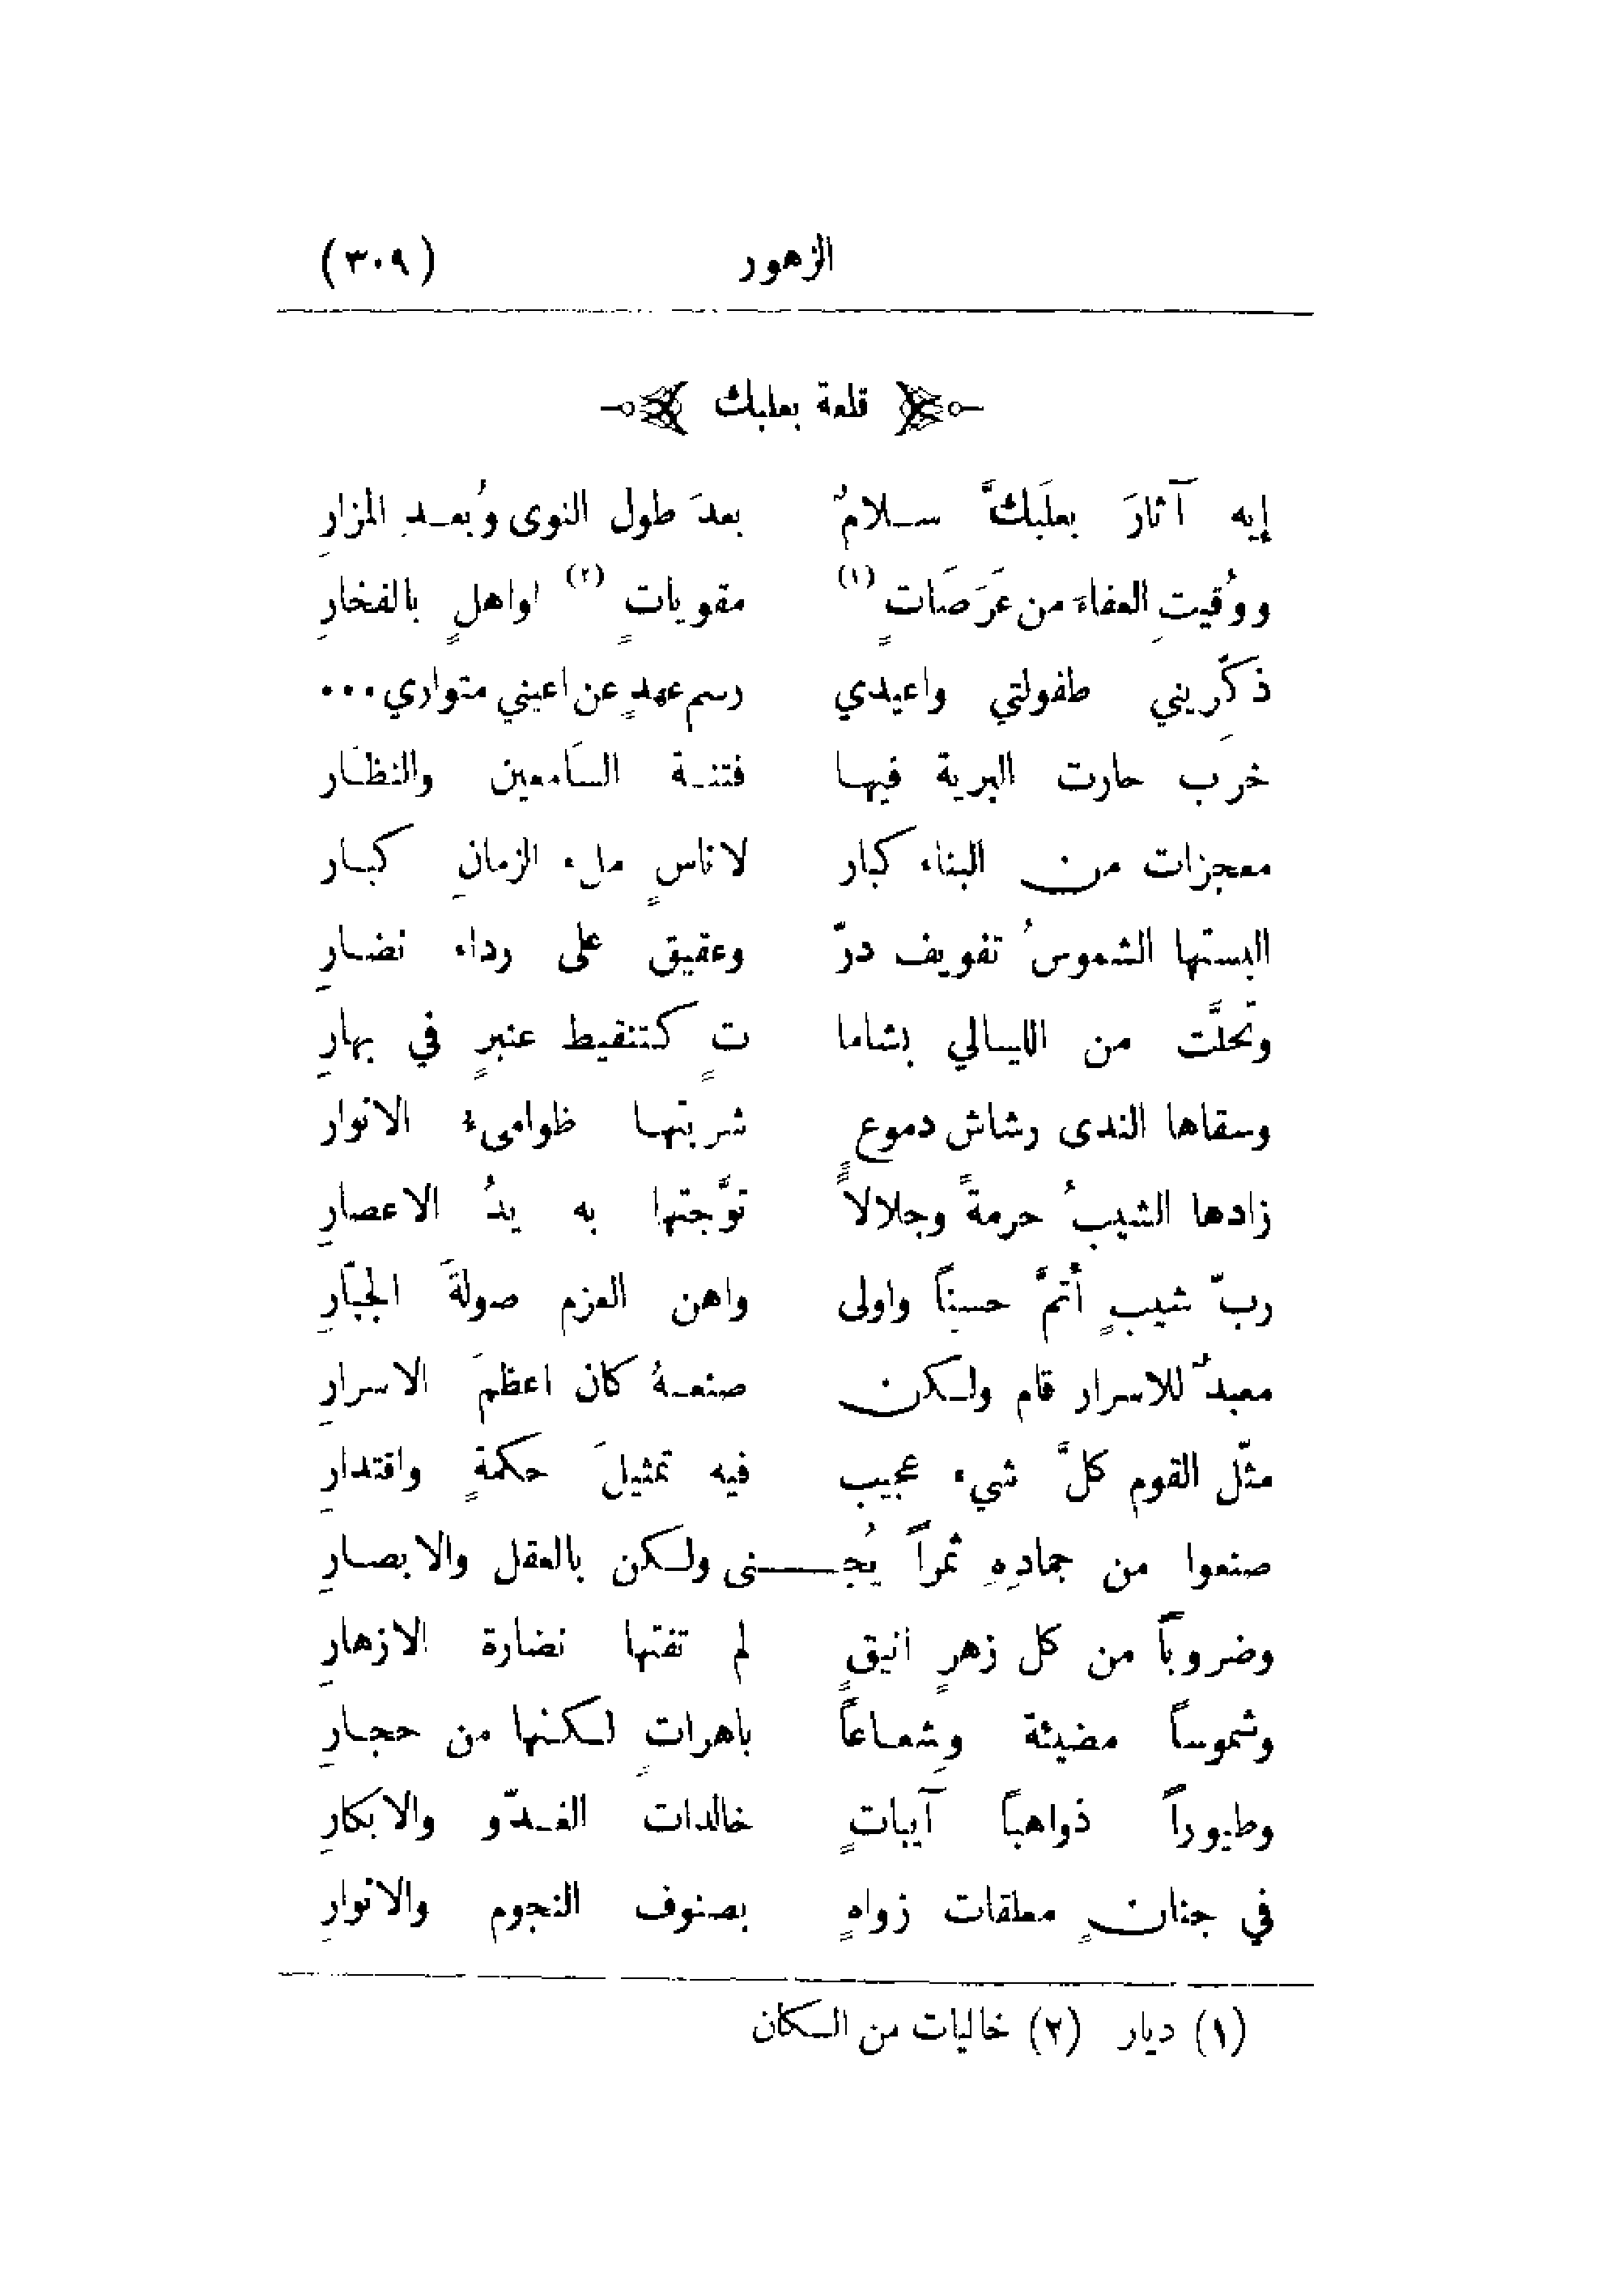 الزهور (٣٠٩)
قلعة بعلبك
إيه آثارَ بعلَبكَّ سـلامٌ بعدَ طول النوى وبُعـدِ المزارِ
ووُقيتِ العفاءَ من عَرَصَاتٍ (١) مقوياتٍ (٢) اواهلٍ بالفخارِ
ذكِّريني طفولتي واعيدي رسم عهدٍ عن اعيني متواري...
خرَب حارت البرية فيهـا فتنـة السَامعين والنظَـار
معجزات من البناء كبار لاناسٍ ملء الزمانِ كبـار
البستها الشموسُ تفويف درّ وعقيق على رداء نضـارِ
وتحلَّت من الليـالي بشاما تٍ كتنقيط عنبرٍ في بهارِ
وسقاها الندى رشاش دموعٍ شربتهـا ظوامىء الانوار
زادها الشيبُ حرمةً وجلالاً توَّجتها به يدُ الاعصارِ
ربّ شيبٍ أتمَّ حسناً واولى واهن العزم صولةَ الجبَّارِ
معبدٌ للاسرار قام ولـكن صنعـهُ كان اعظمَ الاسرارِ
مثّل القوم كلَّ شيء عجيب فيه تمثيلَ حكمةٍ واقتدارِ
صنعوا من جمادِهِ ثمراً يُجـــنى ولـكن بالعقل والابصـارِ
وضروباً من كل زهرٍ انيقٍ لم تفتها نضارة الازهارِ
وشموساً مضيئة وشعـاعاً باهراتٍ لـكنها من حجـارِ
وطيوراً ذواهباً آيباتٍ خالدات الغـدّو والابكارِ
في جنانٍ معلقات زواهٍ بصنوف النجوم والانوارِ
(١) ديار (٢) خاليات من السـكان